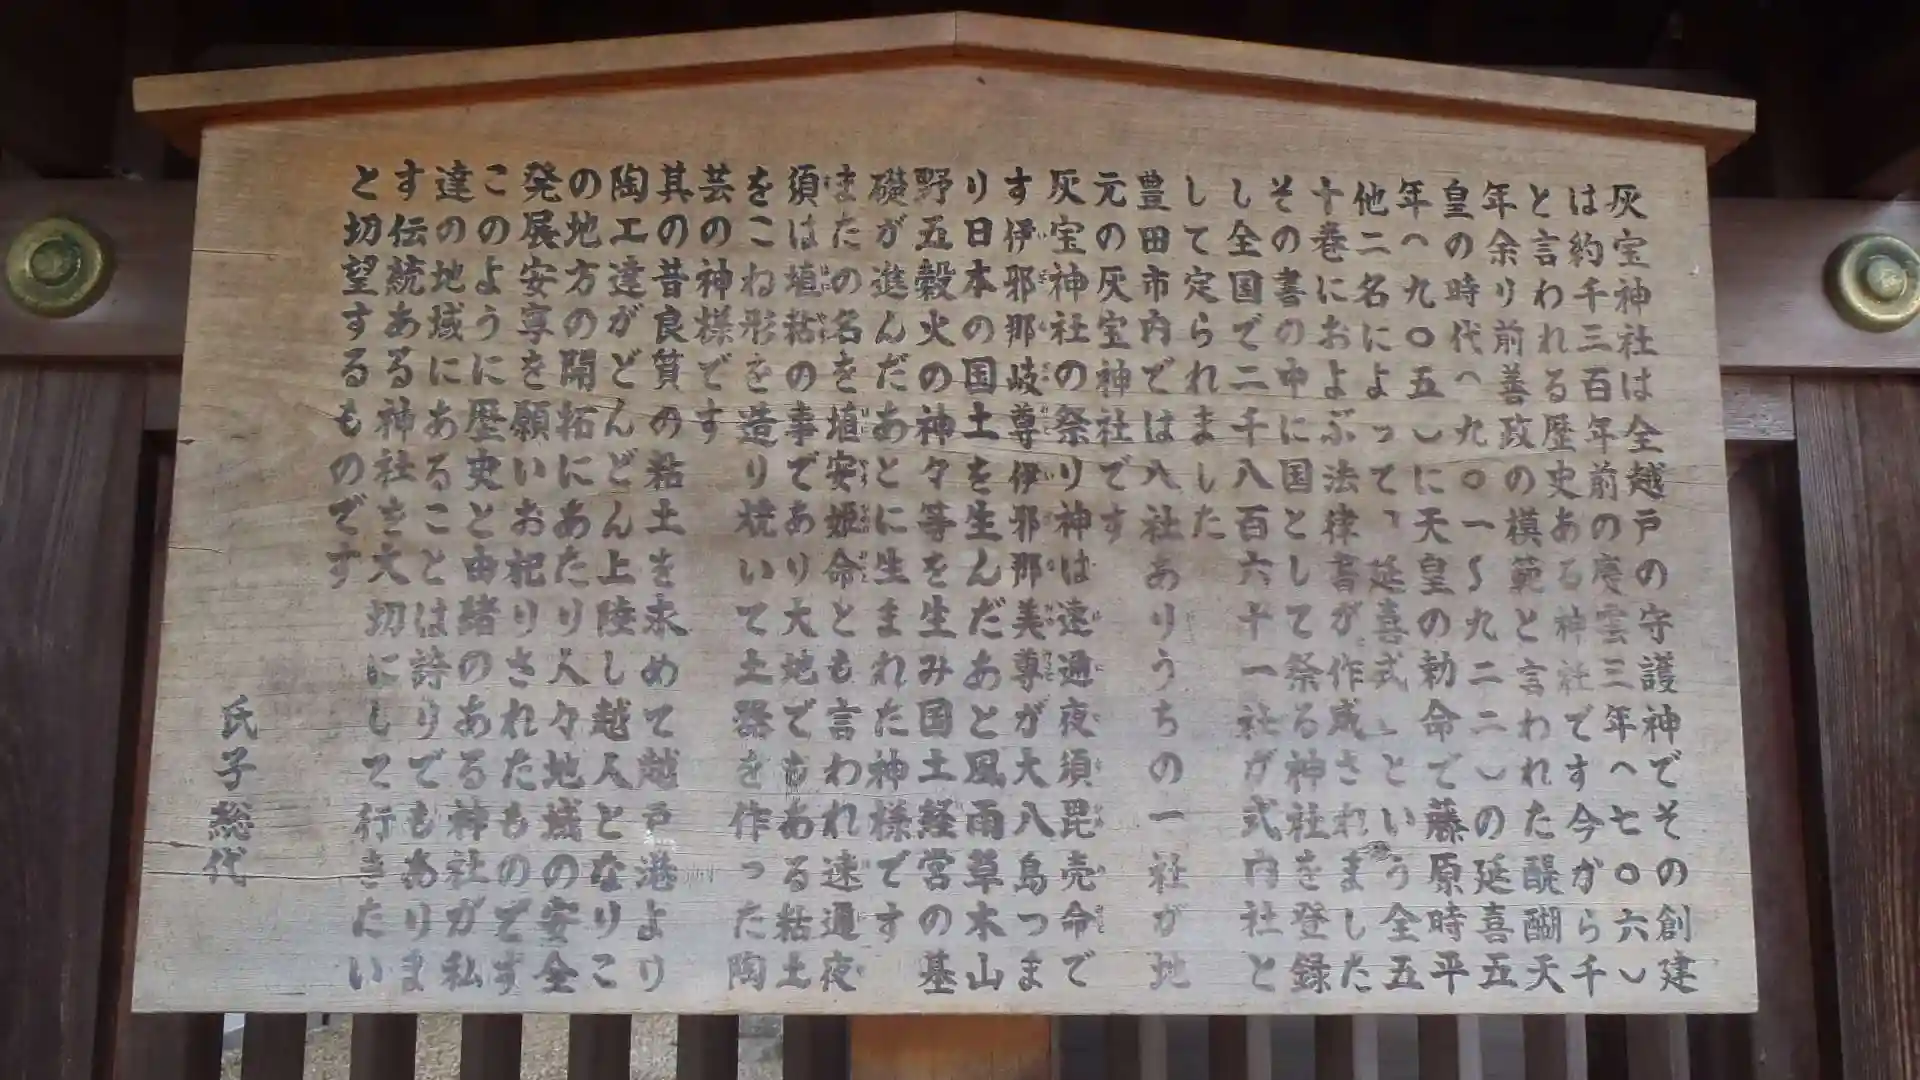 灰宝神社は全越戸の守護神でその創建
は約千三百年前の慶雲三年(七〇六)
と言われる歴史ある神社です今から千
年余り前善政の模範と言われた醍醐天
皇の時代(九〇一~九二二)の延喜五
年(九〇五)に天皇の勅命で藤原時平
他二名によって「延喜式」という全五
十巻におよぶ法律書が作成されました
その書の中に国として祭る神社を登録
し全国で二千八百六十一社が式内社と
して定られました
豊田市内では八社ありうちの一社が地
元の灰宝神社です
灰宝神社の祭り神は速通夜須毘売命で
す伊邪那岐尊伊邪那美尊が大八島つま
り日本の国土を生んだあと風雨草木山
野五穀火の神々等を生み国土経営の基
礎が進んだあとに生まれた神様です
またの名を埴安姫命とも言われ速通夜
須は埴粘の事であり大地でもある粘土
をこね形を造り焼いて土器を作った陶
芸の神様です
其の昔良質の粘土を求めて越戸港より
陶工達がどんどん上陸し越人となりこ
の地方の開拓にあたり人々地域の安全
発展安享を願いお祀りされたものです
このように歴史と由緒のある神社が私
達の地域にあることは誇りでもありま
す伝統ある神社を大切にして行きたい
と切望するものです
氏子総代